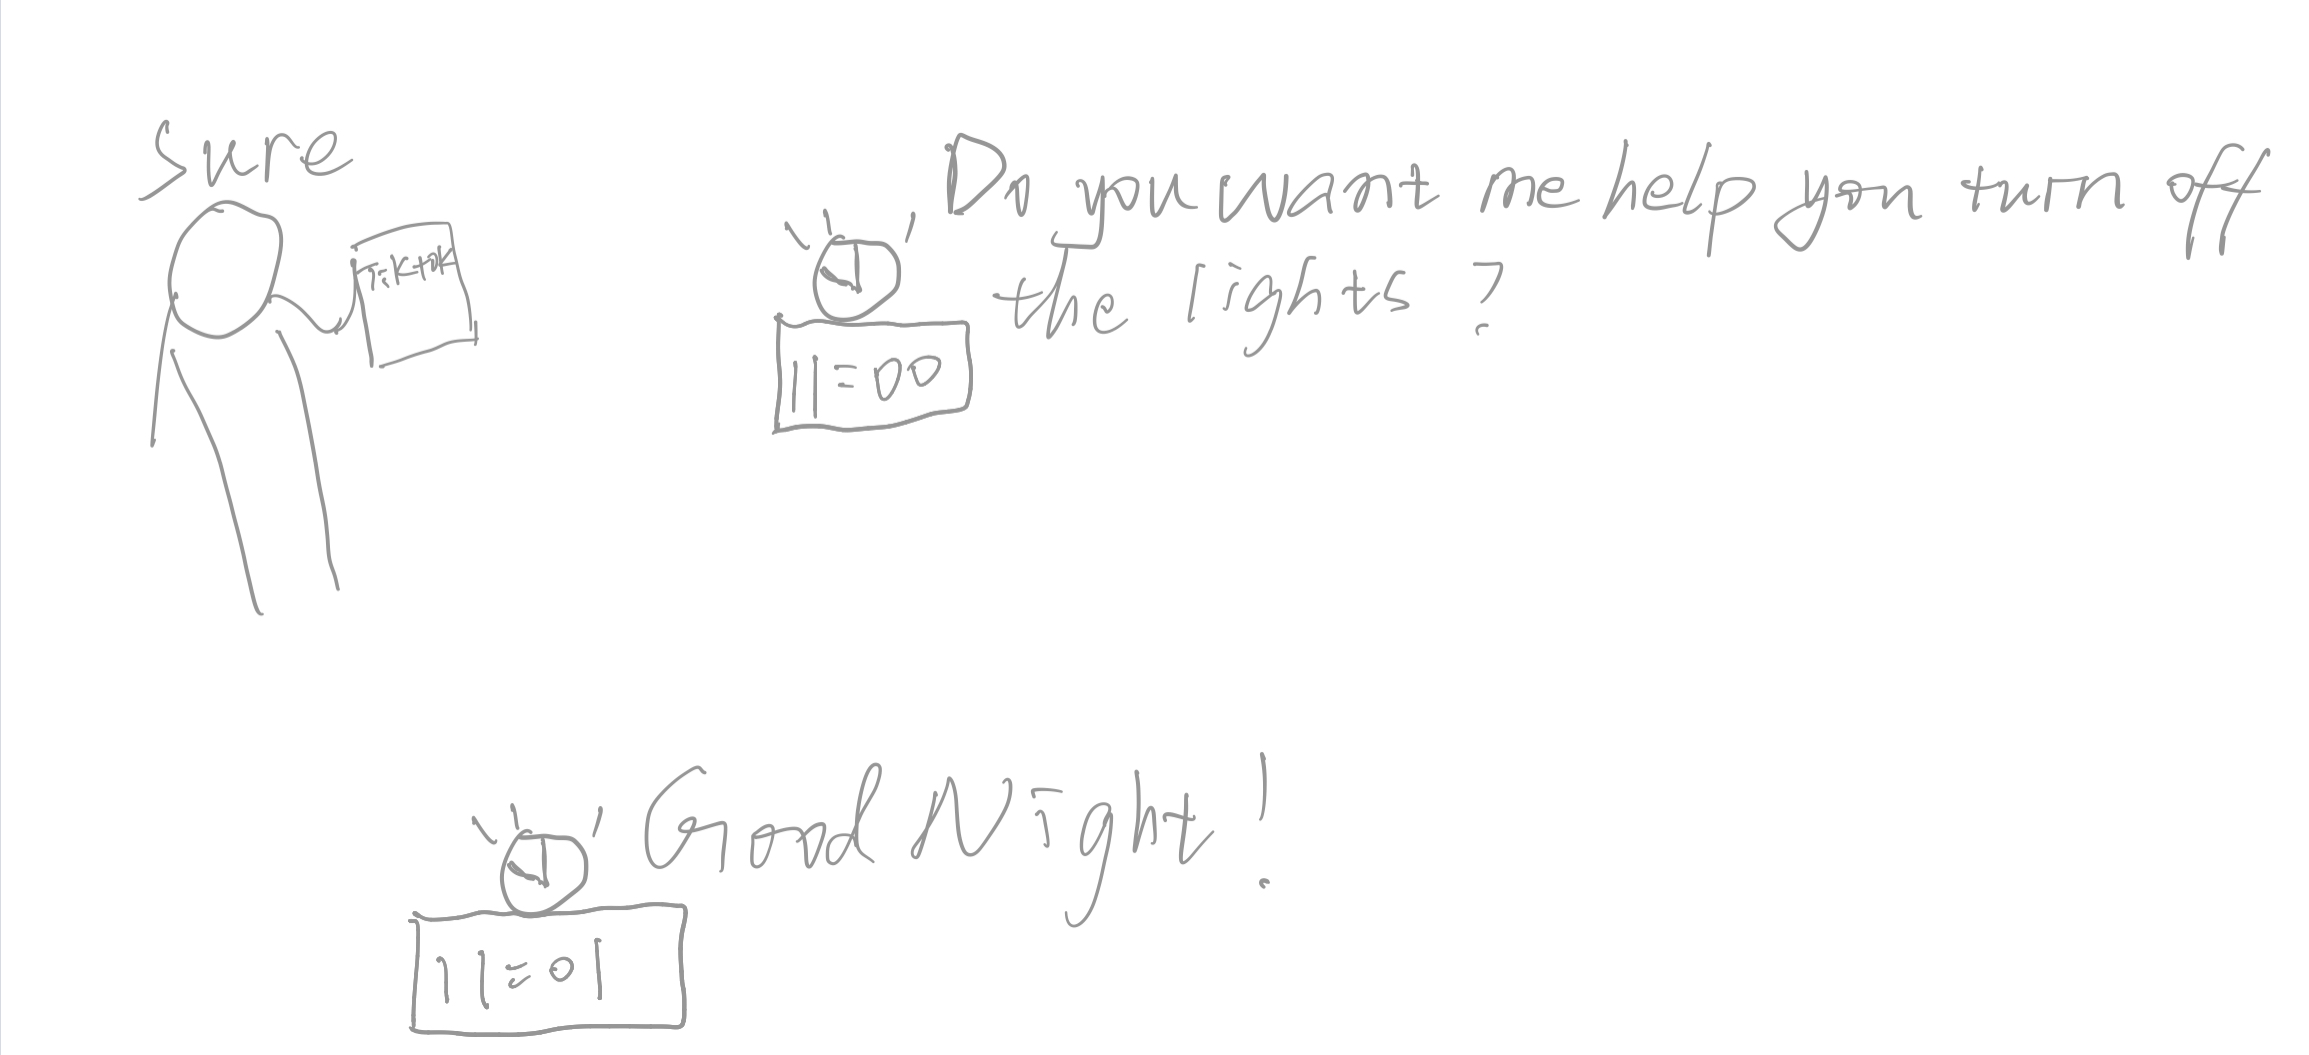 Sure
Do you want me help you turn off
the lights ?
Tiktok
11:00
Good Night!
11:01